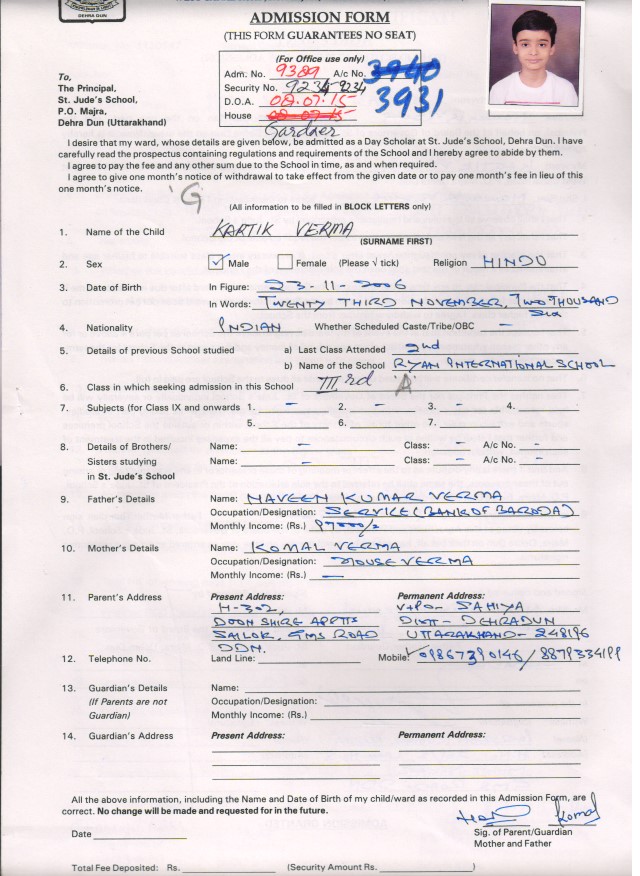 DEHRA DUN
ADMISSION FORM
(THIS FORM GUARANTEES NO SEAT)
(For Office use only)
Adm. No. 9389 A/c No. 3940
Security No. 9234 9234 3931
D.O.A. 08.07.15
House 08.07.15
Gardner
To,
The Principal,
St. Jude's School,
P.O. Majra,
Dehra Dun (Uttarakhand)
I desire that my ward, whose details are given below, be admitted as a Day Scholar at St. Jude's School, Dehra Dun. I have
carefully read the prospectus containing regulations and requirements of the School and I hereby agree to abide by them.
I agree to pay the fee and any other sum due to the School in time, as and when required.
I agree to give one month's notice of withdrawal to take effect from the given date or to pay one month's fee in lieu of this
one month's notice.
'G
(All information to be filled in BLOCK LETTERS only)
1. Name of the Child KARTIK VERMA
(SURNAME FIRST)
2. Sex ✓ Male Female (Please √ tick) Religion HINDU
3. Date of Birth In Figure: 23-11-2006
In Words: TWENTY THIRD NOVEMBER, TWO THOUSAND
Six
4. Nationality INDIAN Whether Scheduled Caste/Tribe/OBC –
5. Details of previous School studied a) Last Class Attended 2nd
b) Name of the School RYAN INTERNATIONAL SCHOOL
6. Class in which seeking admission in this School IIIrd 'A'
7. Subjects (for Class IX and onwards 1. – 2. – 3. – 4.
5. 6. 7.
8. Details of Brothers/ Name: – Class: – A/c No. –
Sisters studying Name: – Class: – A/c No. –
in St. Jude's School
9. Father's Details Name: NAVEEN KUMAR VERMA
Occupation/Designation: SERVICE (BANK OF BARODA)
Monthly Income: (Rs.)
10. Mother's Details Name: KOMAL VERMA
Occupation/Designation:
Monthly Income: (Rs.) –
11. Parent's Address Present Address: Permanent Address:
H-302, V+PO- SAHIYA
DOON SHIRE APPTTS DISTT- DEHRADUN
SAILOK, GMS ROAD UTTARAKHAND- 248196
DDN.
12. Telephone No. Land Line: Mobile: 09867390146 / 8879334199
13. Guardian's Details Name:
(If Parents are not Occupation/Designation:
Guardian) Monthly Income: (Rs.)
14. Guardian's Address Present Address: Permanent Address:
All the above information, including the Name and Date of Birth of my child/ward as recorded in this Admission Form, are
correct. No change will be made and requested for in the future.
Komal
Date Sig. of Parent/Guardian
Mother and Father
Total Fee Deposited: Rs. (Security Amount Rs. )